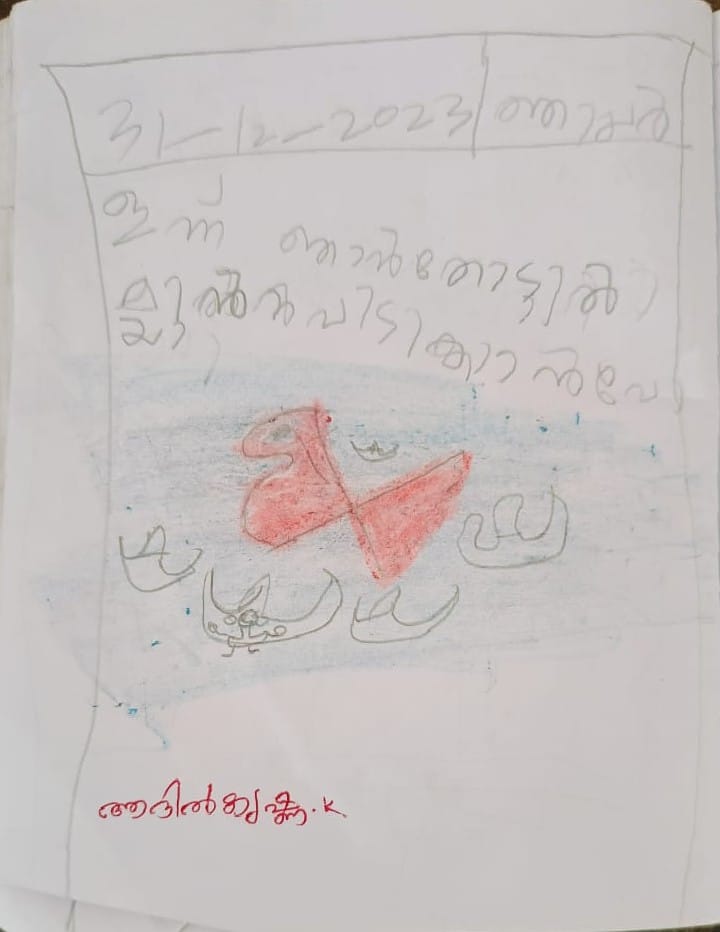 31-12-2023 ഞായർ
ഇന്ന് ഞാൻ തോട്ടിൽ
മീൻ പിടിക്കാൻ പോ
ആദിൽകൃഷ്ണ.K.